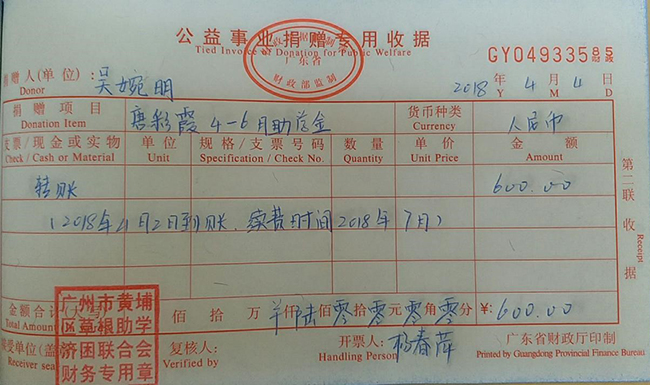 公益事业捐赠专用收据
Tied Invoice of Donation for Public Welfare
广东省
财政部监制
GY04933585
财政
捐赠人(单位): 吴婉明
Donor
2018 年 4 月 4 日
Y M D
捐赠项目 唐彩霞 4-6月助学金 货币种类 人民币
Donation Item Currency
支票/现金或实物 单位 规格/支票号码 数量 单价 金额
Check / Cash or Material Unit Specification / Check No. Quantity Unit Price Amount
转账 600.00
(2018年4月2日到账、续费时间2018年7月)
金额合计 佰拾万 仟陆佰零拾零元零角零分 ¥: 600.00
Total Amount
接受单位(盖 复核人: 开票人: 杨春萍 广东省财政厅印制
Receiver seal Verified by Handling Person Printed by Guangdong Provincial Finance Bureau
广州市黄埔
区草根助学
济困联合会
财务专用章
第二联 收据
Receipt